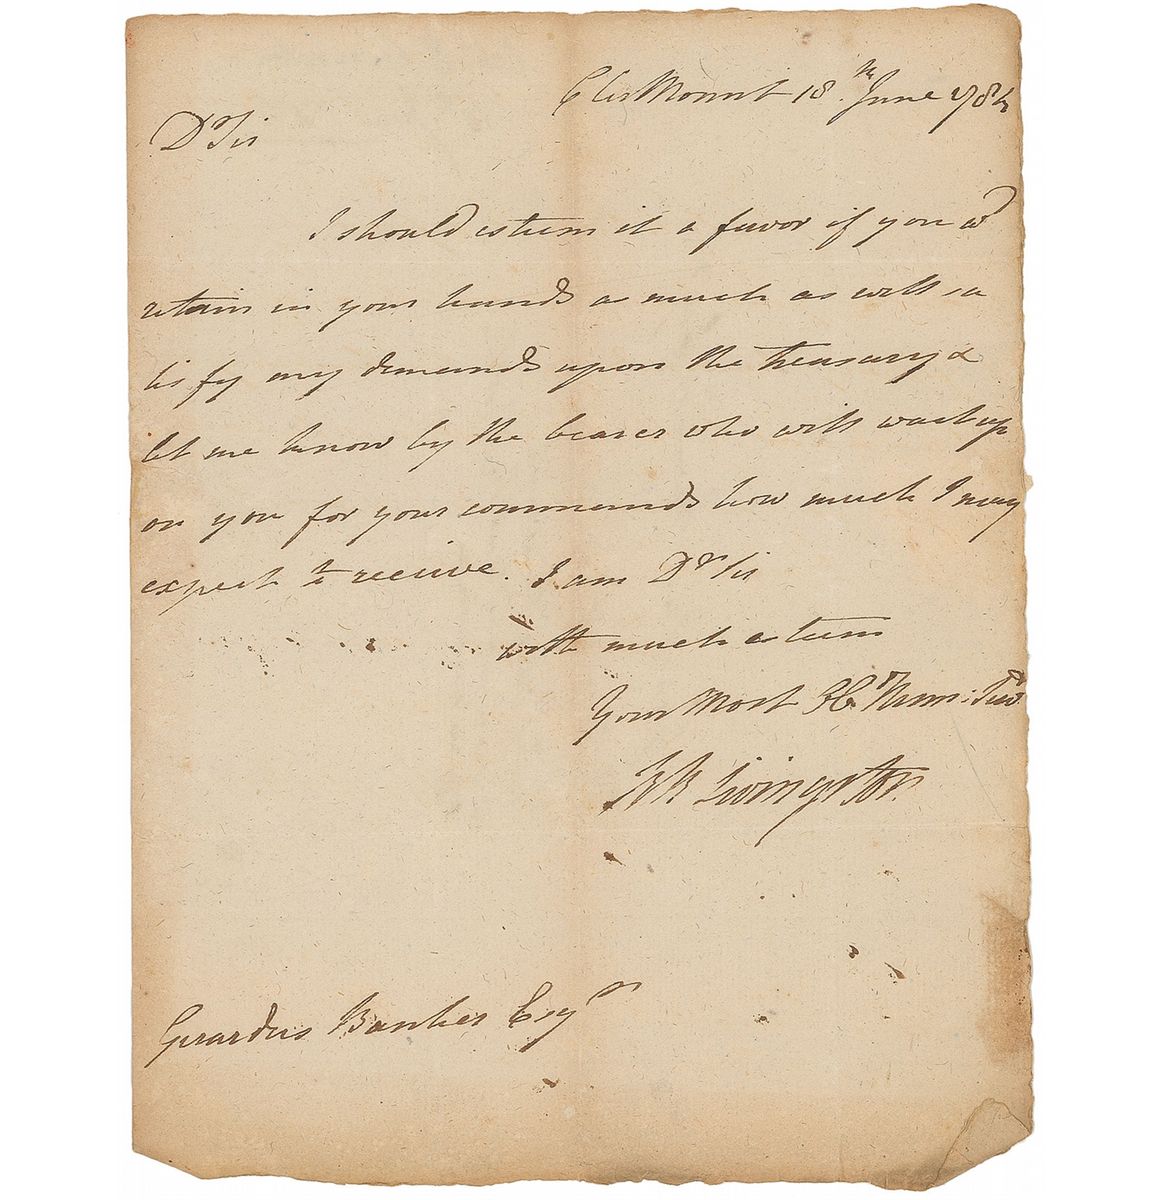 Cler Mount 18th June 1784
Dr Sir
I should esteem it a favor if you wd
retain in your hands as much as will sa
tisfy my demands upon the treasury &
let me know by the bearer who will wait up
on you for your commands how much I may
expect to receive. I am Dr Sir
with much esteem
Your Most Ob Hum: Serv
R R Livingston
Gerardus Banker Esqr